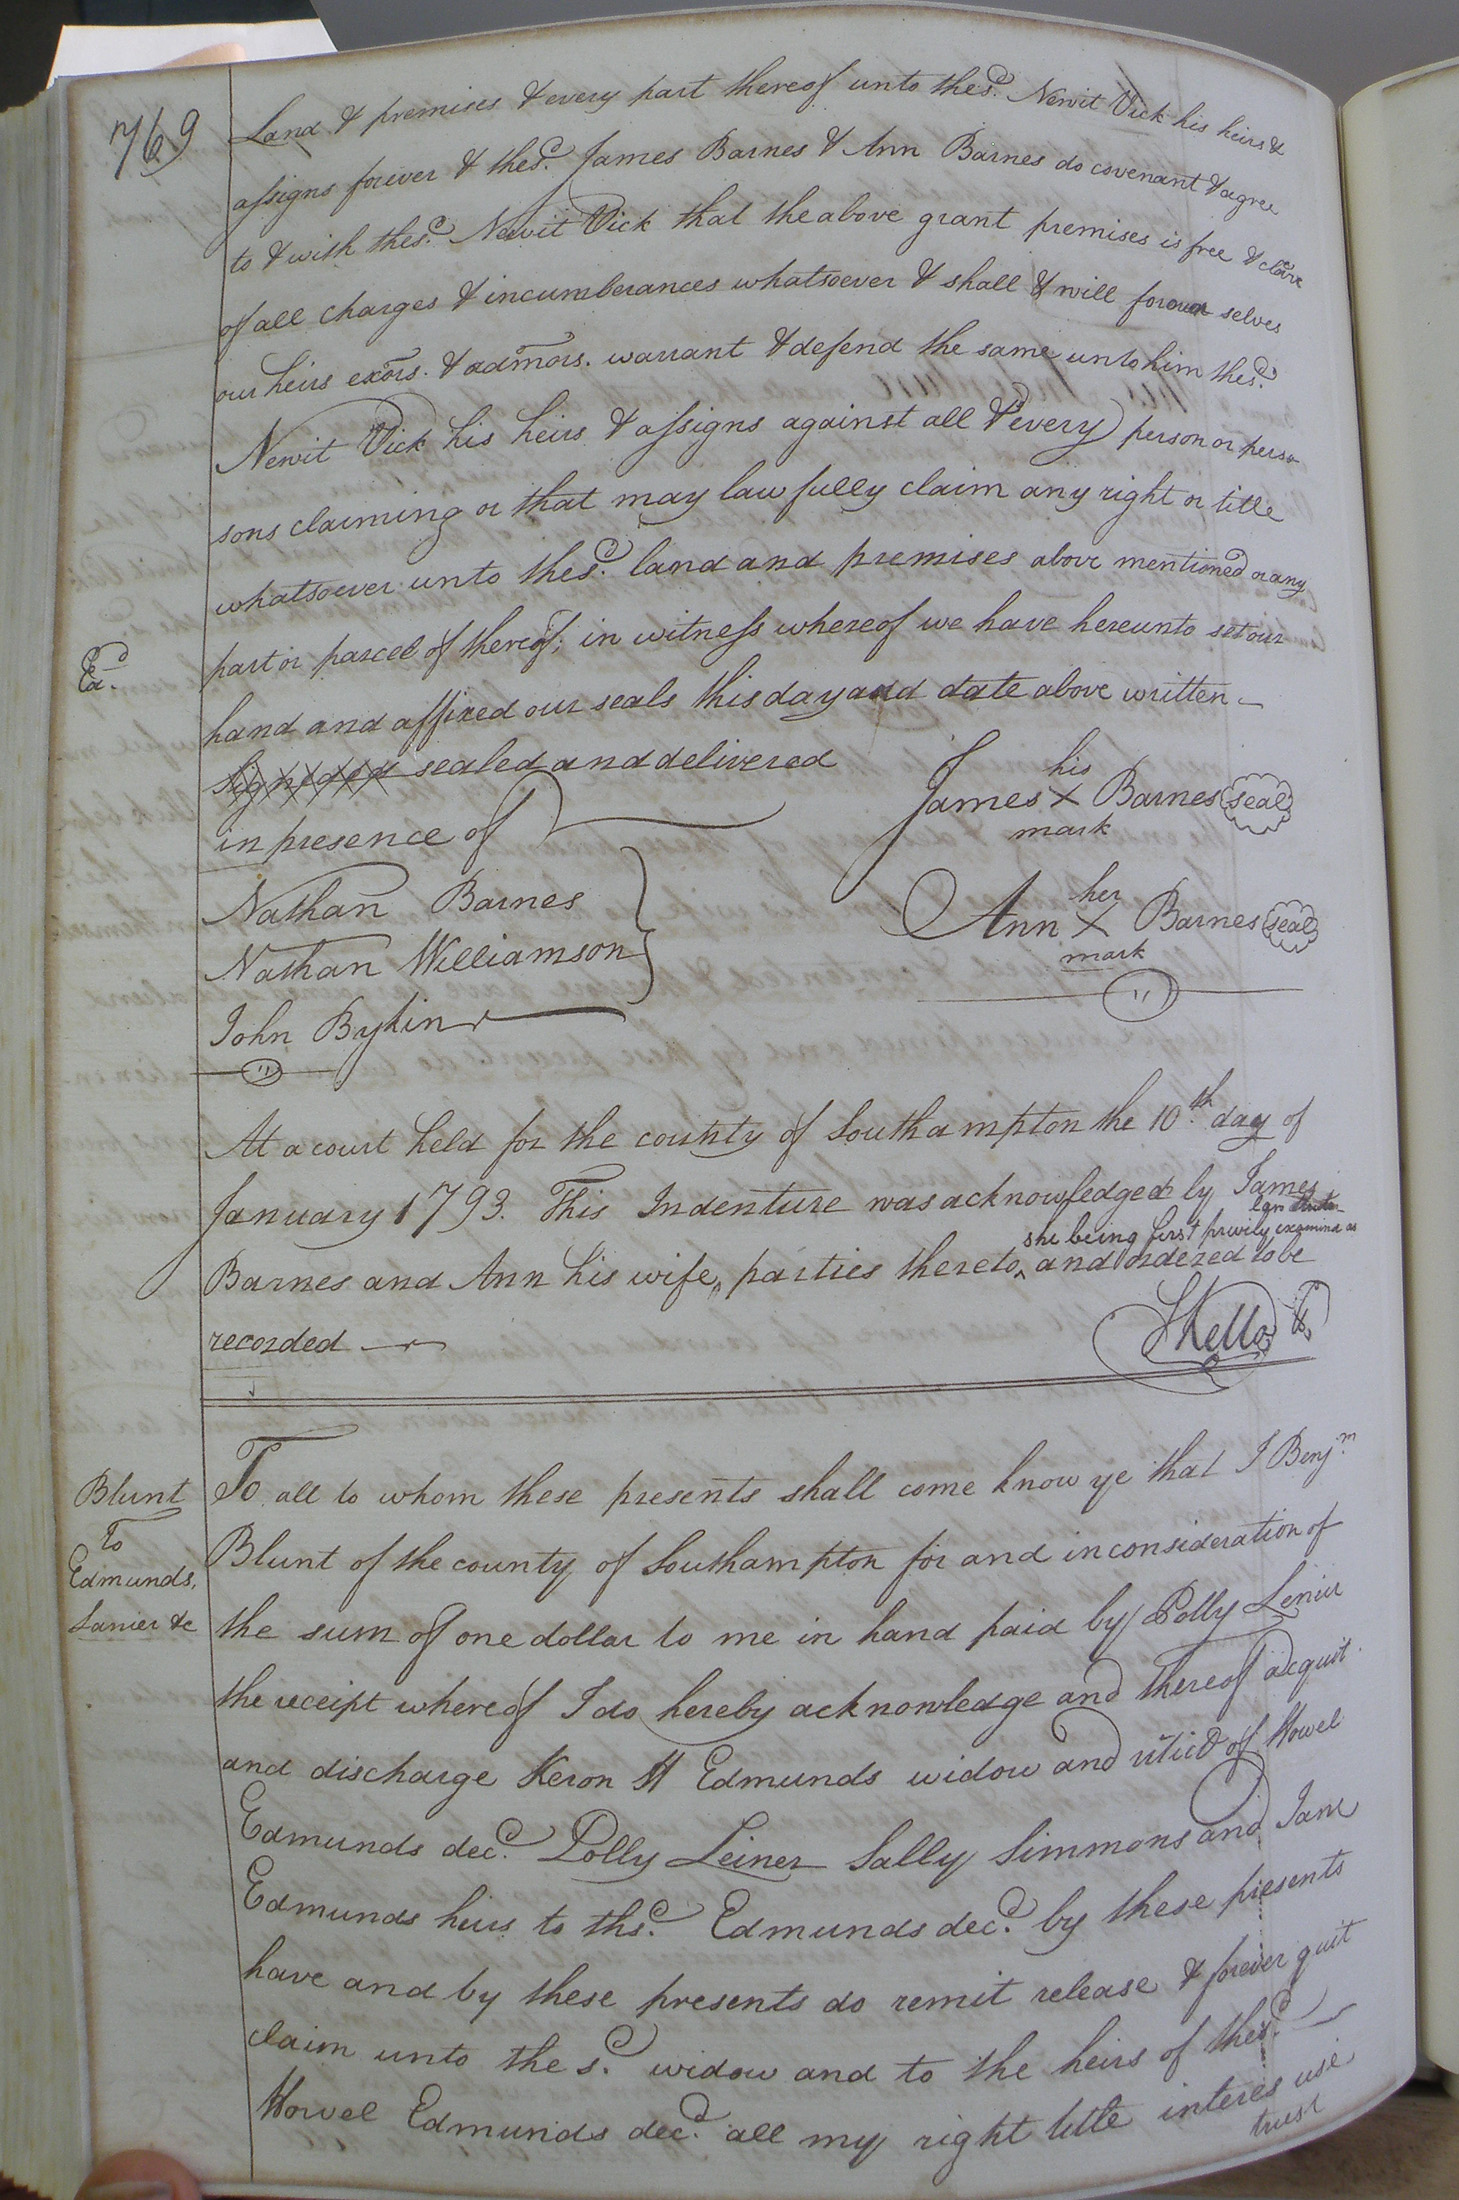 769
Land & premises & every part thereof unto the sd. Newit Vick his heirs &
assigns forever & the sd. James Barnes & Ann Barnes do covenant & agree
to & with the sd. Newit Vick that the above grant premises is free & cleare
of all charges & incumberances whatsoever & shall & will for our selves
our heirs exors. & admors. warrant & defend the same unto him the sd.
Newit Vick his heirs & assigns against all & every person or perso
sons claiming or that may lawfully claim any right or title
whatsoever unto the sd. land and premises above mentioned or any
part or parcel of thereof; in witness whereof we have hereunto set our
Ed.
hand and affixed our seals this day and date above written
Signeded sealed and delivered
in presence of
James his X mark Barnes seal
Nathan Barnes
Nathan Williamson
John Bykin
Ann her X mark Barnes seal
At a court held for the county of Southampton the 10th. day of
January 1793. This Indenture was acknowledged by James
she being first privily examind as law
Barnes and Ann his wife, parties thereto, ^ and ordered to be
recorded
Blunt
To
Edmunds,
Lanier &c
To all to whom these presents shall come know ye that I Benjm.
Blunt of the county of Southampton for and in consideration of
the sum of one dollar to me in hand paid by Polly Lenier
the receipt whereof I do hereby acknowledge and thereof acquit
and discharge Keron H Edmunds widow and of Howel
Edmunds decd. Polly Leiner Sally Simmons and Jane
Edmunds heirs to th sd. Edmunds decd. by these presents
have and by these presents do remit release & forever quit
claim unto the sd. widow and to the heirs of the sd.
Howel Edmunds decd. all my right title interes use
trust